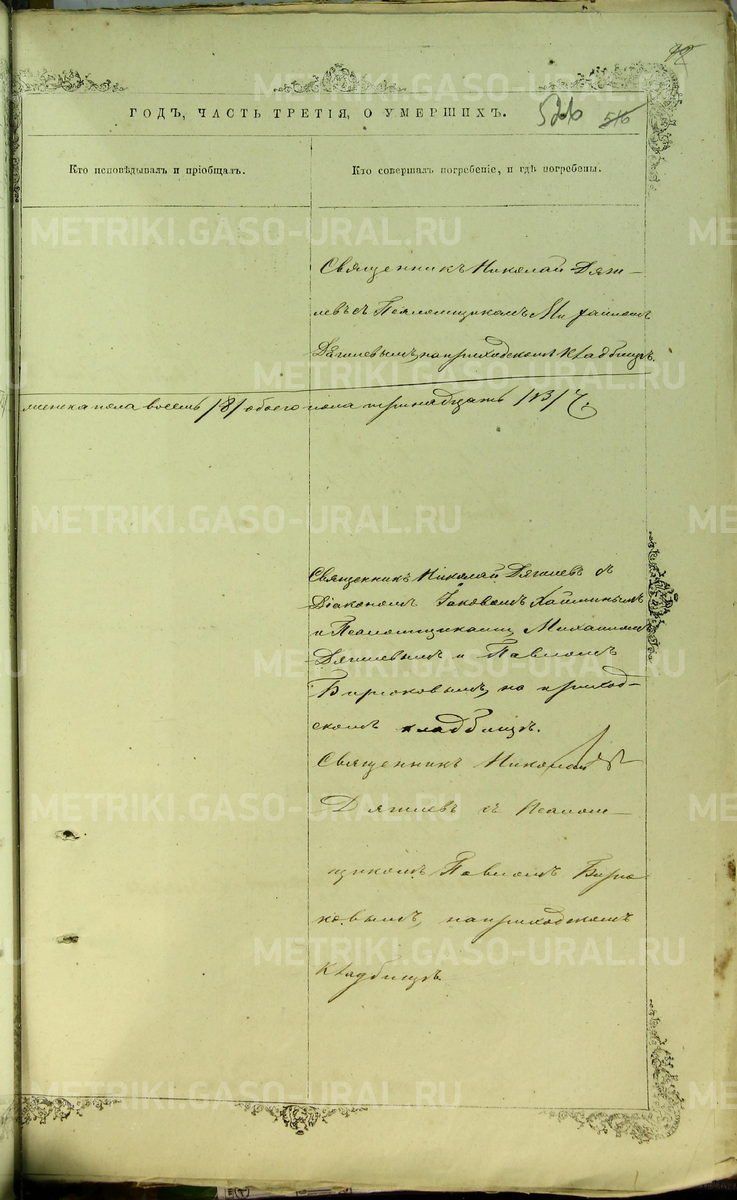 ГОДЪ, ЧАСТЬ ТРЕТІЯ, О УМЕРШИХЪ.
Кто исповѣдывалъ и пріобщалъ.
Кто совершалъ погребеніе, и гдѣ погребены.
Священникъ Николай Дяги-
левъ съ Псаломщикомъ Михаиломъ
Дягилевымъ, на приходскомъ кладбищѣ.
женска пола восемь /8/ обоего пола тринадцать /13/
Священникъ Николай Дягилев съ
Діакономъ Іаковомъ
и Псаломщиками Михаиломъ
Дягилевымъ и Павломъ
Бирюковымъ, на приход-
скомъ кладбищѣ.
Священникъ Николай
Дягилевъ съ Псалом-
щикомъ Павломъ Бирю-
ковымъ, на приходскомъ
кладбищѣ.
METRIKI.GASO-URAL.RU